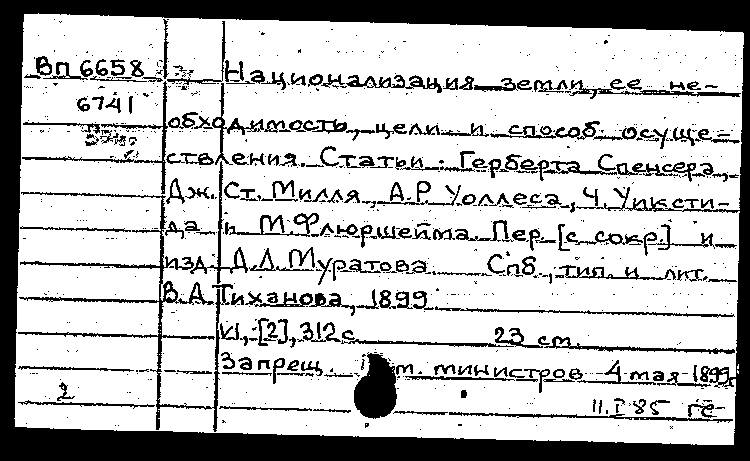 Вп 6658 Национализация земли, ее не-
6741
обходимость, цели и способ осуще=
ствления. Статьи: Герберта Спенсера,
Дж. Ст. Милля, А.Р. Уоллеса, Ч. Уиксти-
да и М. Флюршейма. Пер. [с сокр.] и
изд. Д.Л. Муратова. Спб, тип. и лит.
В.А. Тиханова, 1899.
VI, [2], 312 с. 23 см.
Запрещ. т. министров 4 мая 1899
2
11.I 85 ге